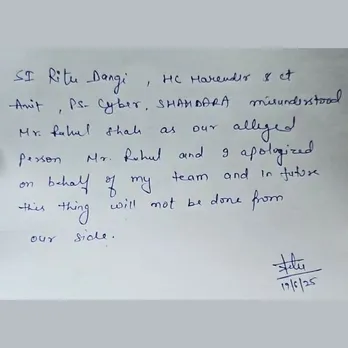 SI Ritu Dangi, HC Harender & ct
Amit, PS- Cyber, SHAHDARA misunderstood
Mr. Rahul Shah as our alleged
person Mr. Rahul and I apologized
on behalf of my team and in future
this thing will not be done from
our side.
Ritu
19/6/25